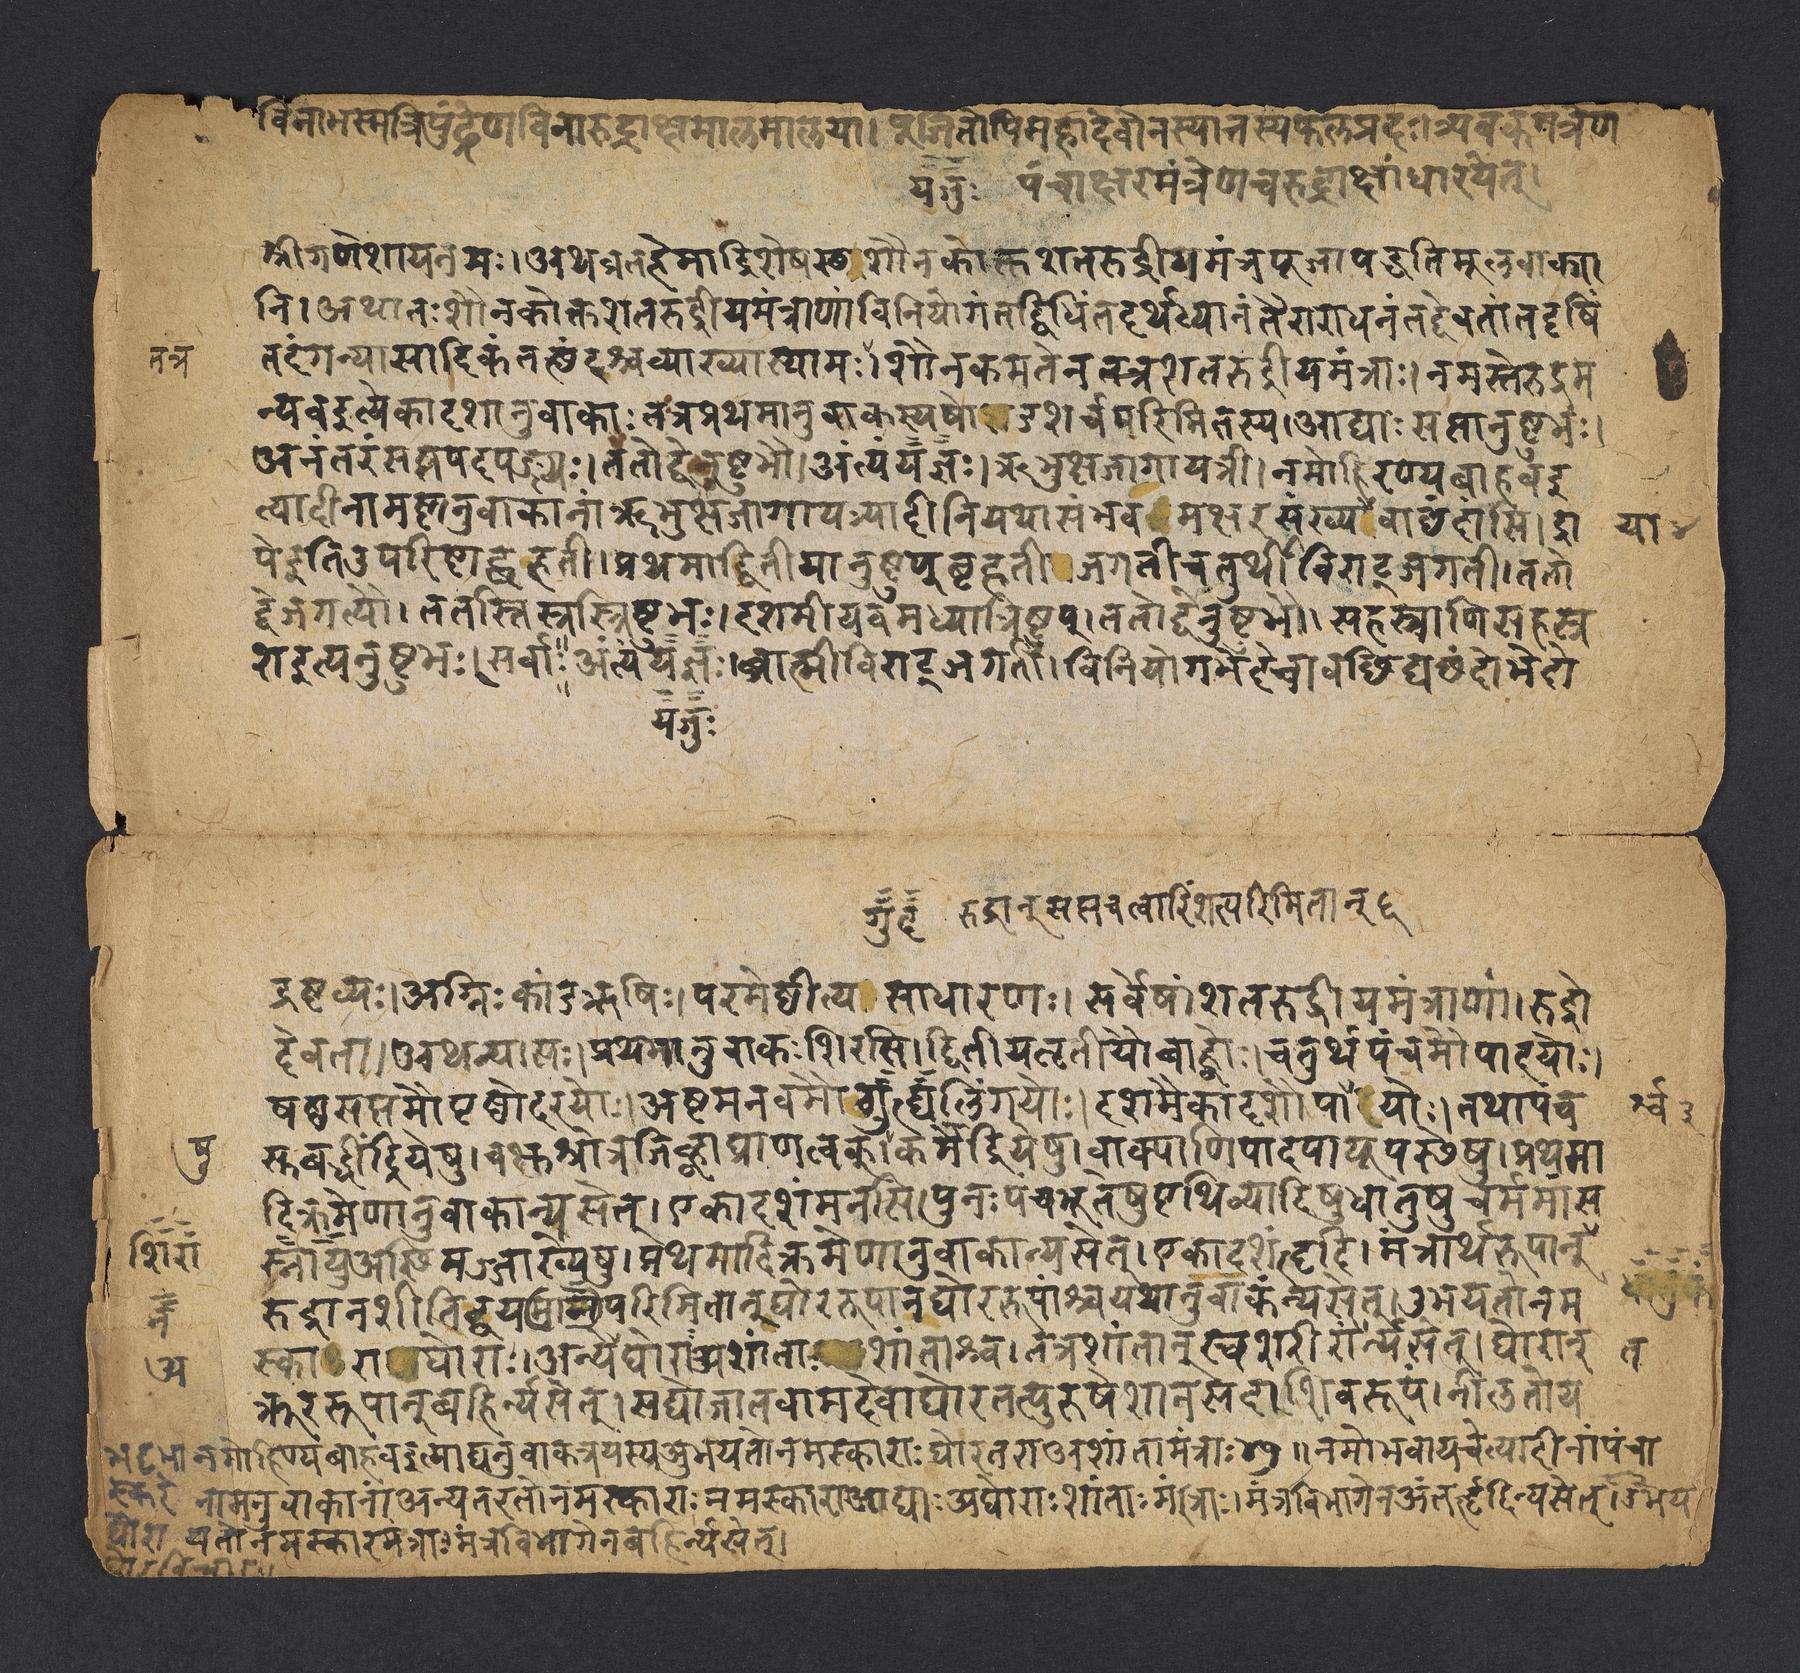 विनाभस्मत्रिपुंड्रेणविनारुद्राक्षमालमालया। पूजितोपिमहादेवोनस्यात्तस्यफलप्रदः। त्र्यंबकमंत्रेण
यजुः पंचाक्षरमंत्रेणचरुद्राक्षांधारयेत्।
श्रीगणेशायनमः। अथव्रतहेमाद्रिशेषस्थशौनकोक्तशतरुद्रीयमंत्रपूजापद्धतिमूलवाक्या
नि। अथातःशौनकोक्तशतरुद्रीयमंत्राणांविनियोगंतद्विधिंतदर्थध्यानंतैराराधनंतद्देवतांतदृषिं
तत्र
तदंगन्यासादिकंतछंदश्चव्याख्यास्यामः। शौनकमतेनतत्रशतरुद्रीयमंत्राः। नमस्तेरुद्रम
न्यवइत्येकादशानुवाकाः तत्रप्रथमानुवाकस्यषोडशर्चपरिमितस्य। आद्याः सप्तानुष्टुभः।
अनंतरंसप्तपदपङ्क्त्यः। ततोद्वेनुष्टुभौ। अंत्यंयजुः। ऋभुक्षजागायत्री। नमोहिरण्यबाहवइ
त्यादीनामष्टानुवाकानांऋभुक्षजागायत्र्यादीनियथासंभवमक्षरसंख्ययावाछंदांसि। द्रा
या
पेइतिउपरिष्टाद्बृहती। प्रथमाद्वितीयानुष्टुप्बृहतीजगतीचतुर्थीविराट्जगती। ततो
द्वेजगत्यौ। ततस्तिस्रस्त्रिष्टुभः। दशमीयवमध्यात्रिष्टुप्। ततोद्वेनुष्टुभौ। सहस्राणिसहस्र
शइत्यनुष्टुभः। सर्वाः अंत्यंयजुः। ब्राह्मीविराट्जगती। विनियोगभेदेचावछिद्यछंदोभेदो
यजुः
गुद रुद्रान्सप्तचत्वारिंशत्परिमितान्हृ
द्रष्टव्यः। अग्निः कांडऋषिः। परमेष्ठीत्यसाधारणः। सर्वेषांशतरुद्रीयमंत्राणां। रुद्रो
देवता। अथन्यासः। प्रथमानुवाकःशिरसि। द्वितीयतृतीयौबाह्वोः। चतुर्थपंचमौपादयोः।
षष्ठसप्तमौपृष्ठोदरयोः। अष्टमनवमौगुह्यलिंगयोः। दशमैकादशौपायोः। तथापंच
र्श्व ३
षु
स्तबुद्धींद्रियेषु। चक्षुश्रोत्रजिह्वाघ्राणत्वक्षु। कर्मेंद्रियेषु। वाक्पाणिपादपायूपस्थेषु। प्रथमा
दिक्रमेणानुवाकान्न्यसेत्। एकादशंमनसि। पुनःपंचभूतेषुपृथिव्यादिषुधातुषुचर्ममांस
शिरां
स्नायुअस्थिमज्जाख्येषु। प्रथमादिक्रमेणानुवाकान्न्यसेत्। एकादशंहृदि। मंत्रार्थरूपान्
न
रुद्रानशीतिद्वयपरिमितान्घोररूपानघोररूपांश्चयथानुवाकंन्यसेत्। उभयतोनम
अ
स्काराघोराः। अन्येघोराअशांताःशांताश्च। तत्रशांतान्स्वशरीरेन्यसेत्। घोरान्
त
क्रूररूपान्बहिर्न्यसेत्। सद्योजातवामदेवाघोरतत्पुरुषेशानसदाशिवरूपं। नीलतोय
नमोहिरण्यबाहवइत्याद्यनुवाकत्रयस्यउभयतोनमस्काराः घोरतराअशांतामंत्राः॥ नमोभवायचेत्यादीनांपंचा
नामनुवाकानांअन्यतरतोनमस्काराः नमस्काराआद्याः अघोराः शांताः मंत्राः। मंत्रविभागेनअंतर्हृदिन्यसेत्। उभय
यतोनमस्कारमंत्राः मंत्रविभागेनबहिर्न्यसेत्।